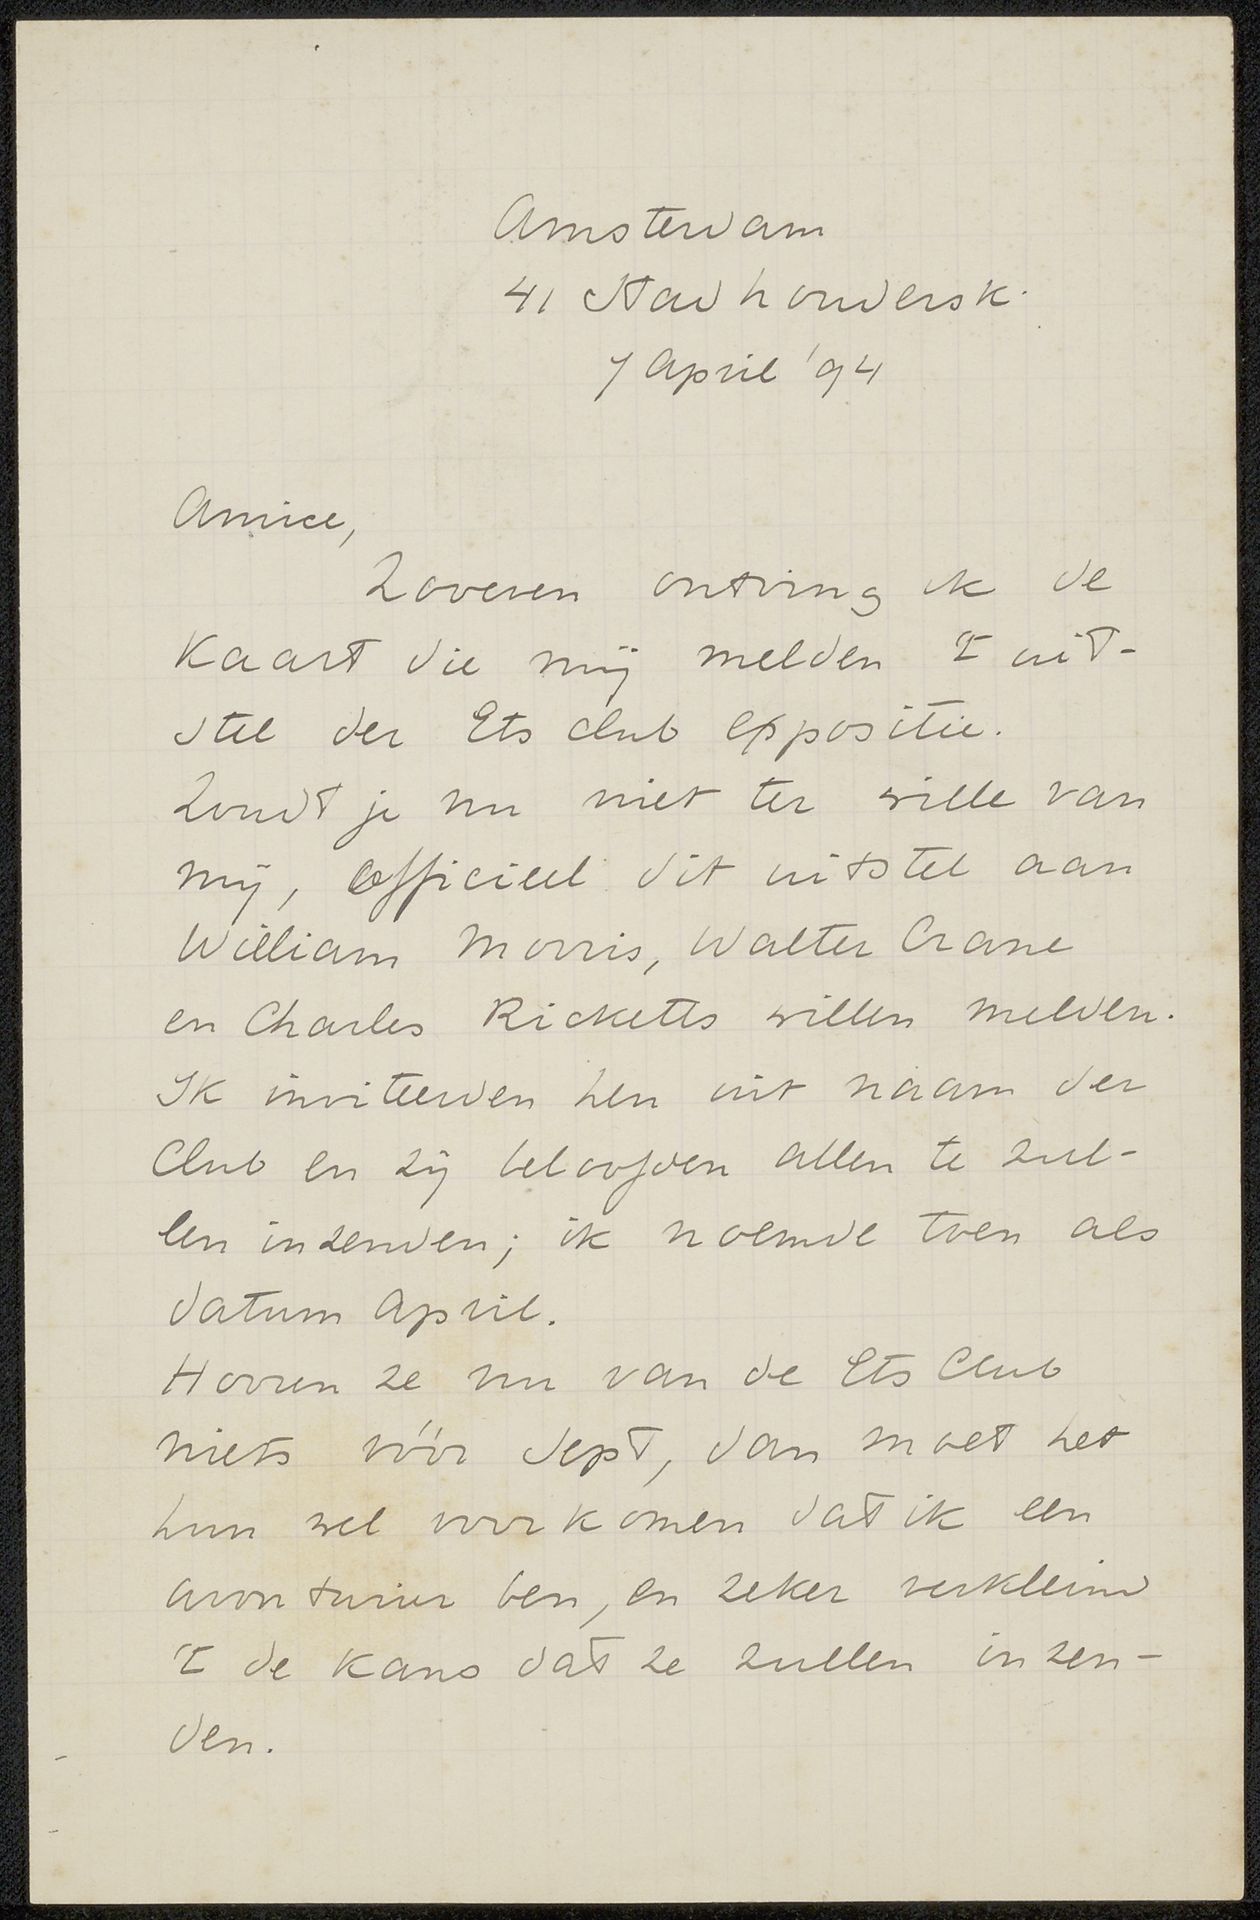 Amsterdam
41 Stadhoudersk.
7 April '94
Amice,
Zoveven ontving ik de
kaart die mij melden 't uit-
stel der Ets club Expositie.
Zoudt je nu niet ter wille van
mij, officieel dit uitstel aan
William Morris, Walter Crane
en Charles Ricketts willen melden.
Ik inviteerden hen uit naam der
Club en zij beloofden allen te zul-
len inzenden; ik noemde toen als
datum April.
Hooren ze nu van de Ets Club
niets vóór Sept, dan moet het
hun wel voorkomen dat ik een
avonturier ben, en zeker verkleind
't de kans dat ze zullen inzen-
den.